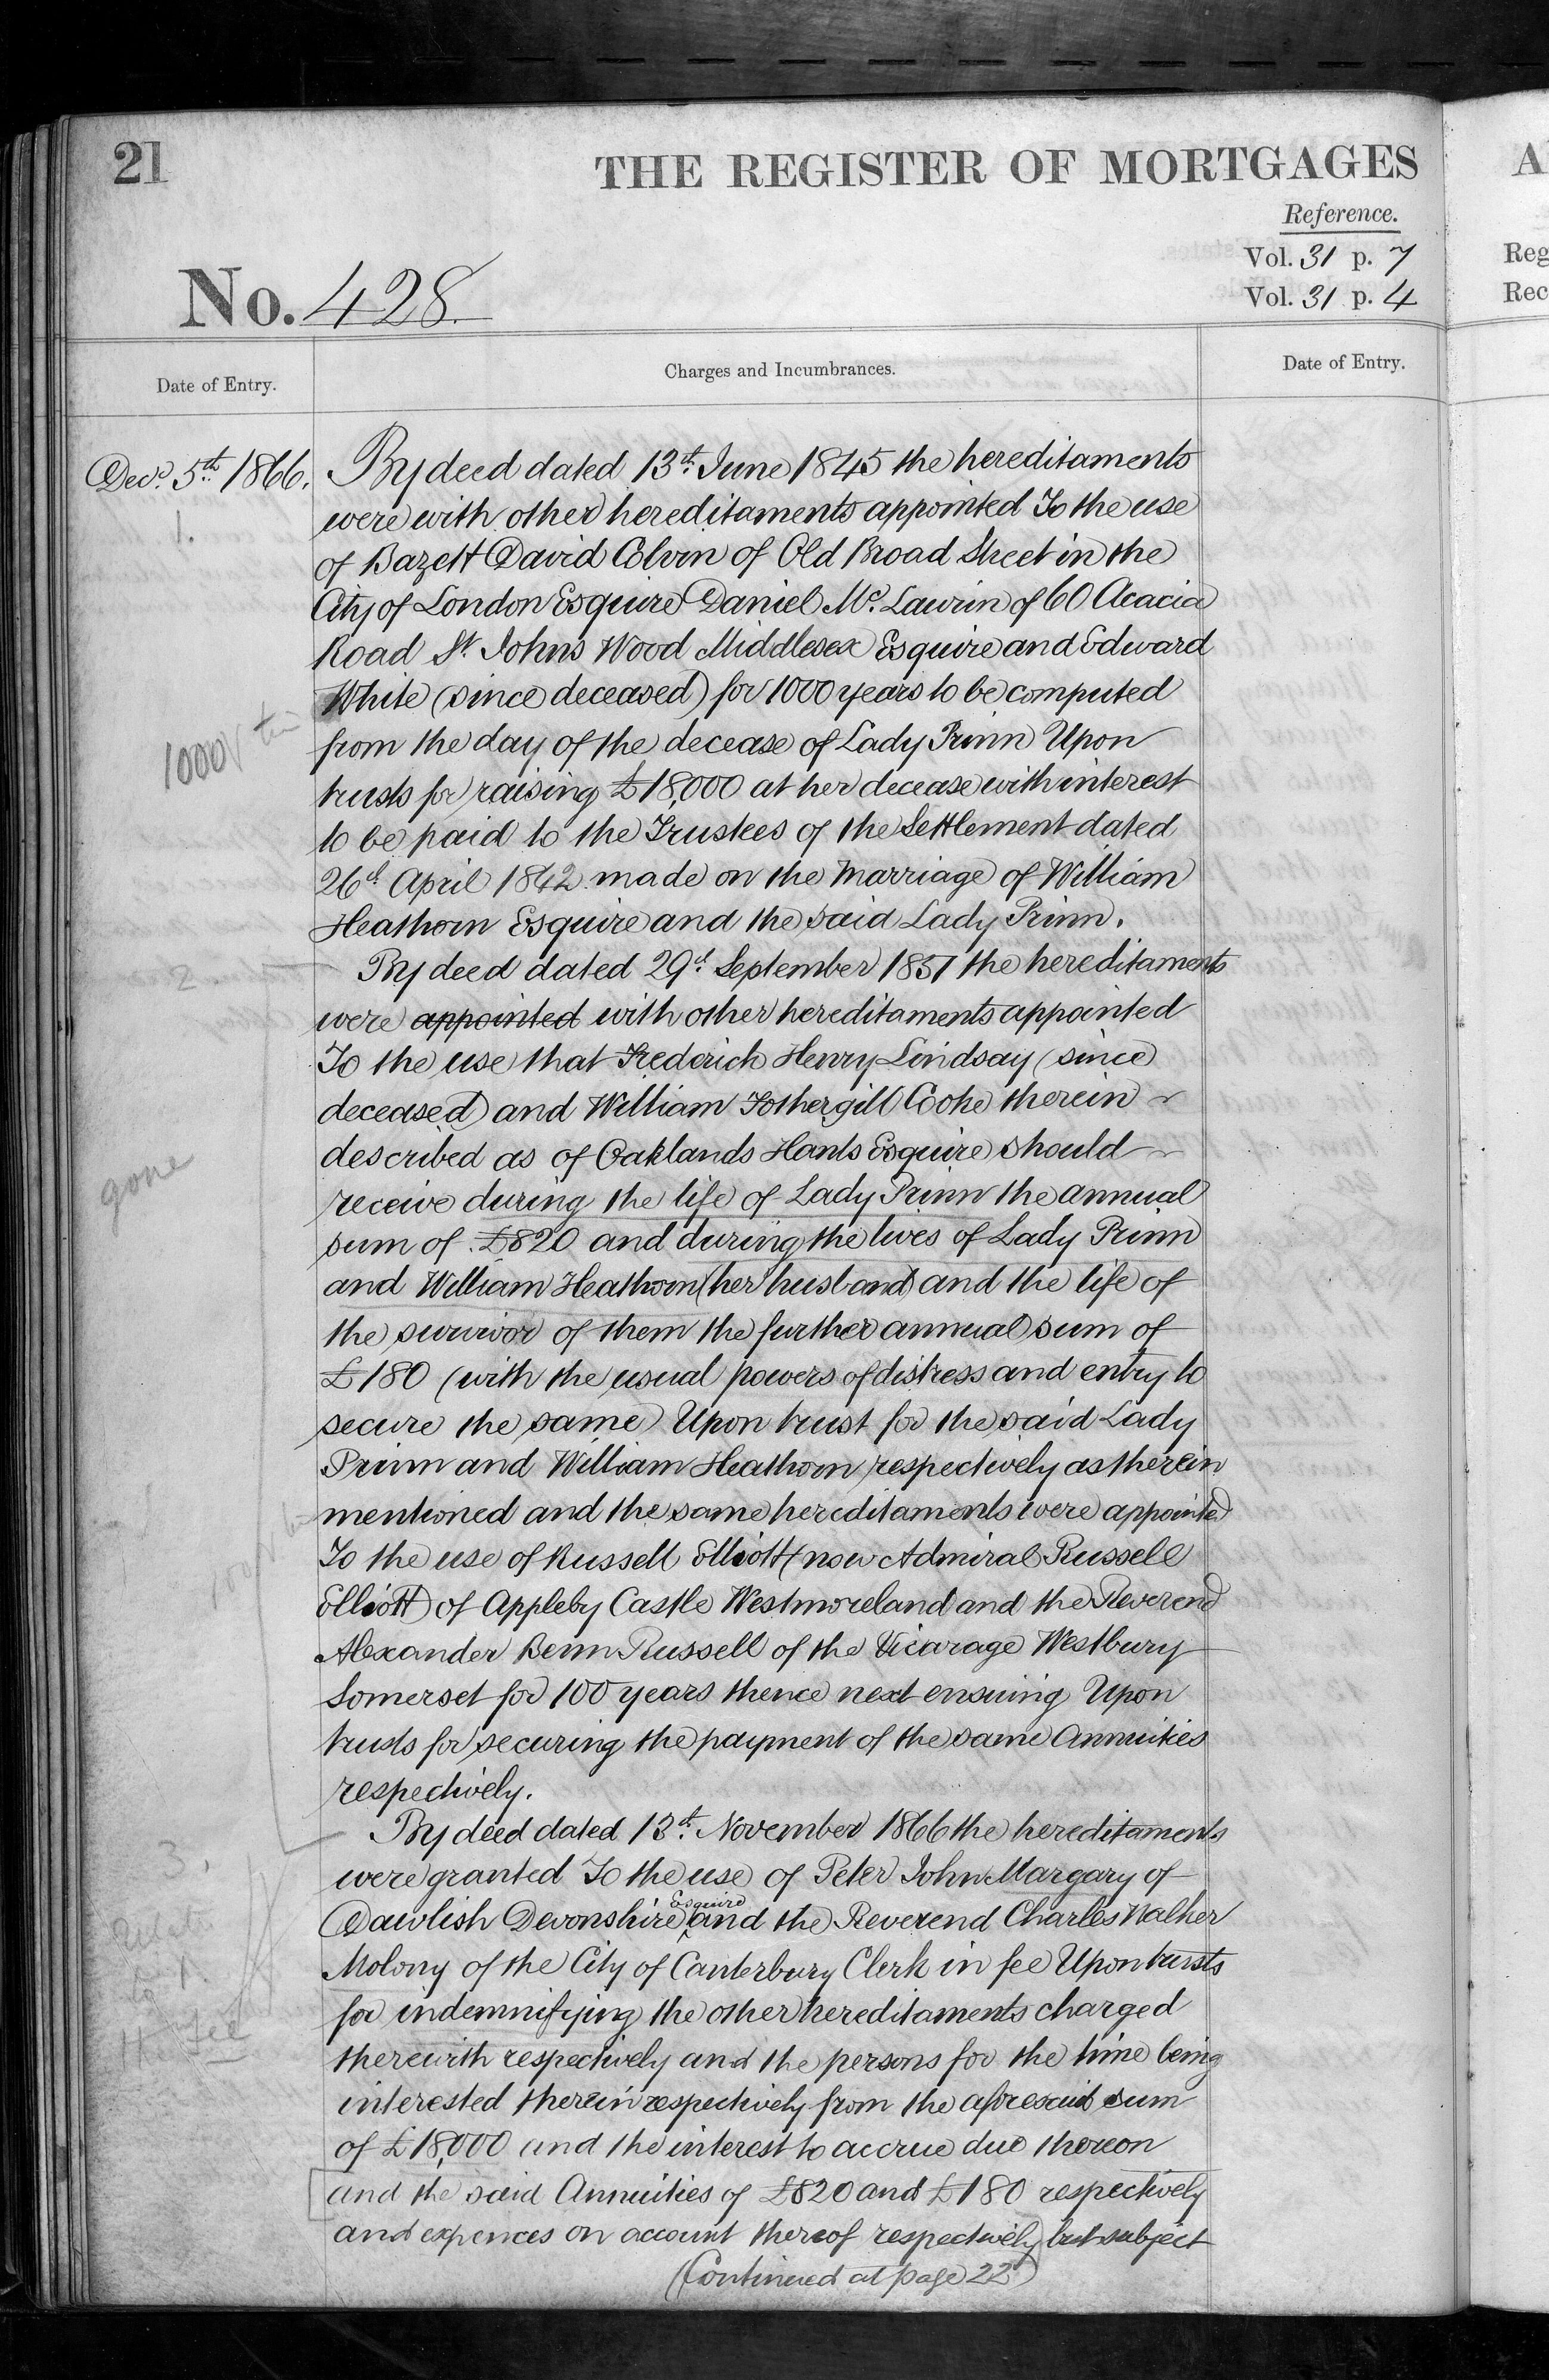 21
THE REGISTER OF MORTGAGES
A
Reference.
Vol. 31 p. 7
Reg
Vol. 31 p. 4
Rec
No. 428.
Date of Entry.
Charges and Incumbrances.
Date of Entry.
Decr. 5th 1866.
1.
By deed dated 13th June 1845 the hereditaments
were with other hereditaments appointed To the use
of Bazett David Colvin of Old Broad Street in the
City of London Esquire Daniel Mc. Laurin of 60 Acacia
Road St. Johns Wood Middlesex Esquire and Edward
White (since deceased) for 1000 years to be computed
1000
from the day of the decease of Lady Prinn Upon
trusts for raising £18,000 at her decease with interest
to be paid to the Trustees of the Settlement dated
26th April 1842 made on the marriage of William
Heathorn Esquire and the said Lady Prinn.
2.
By deed dated 29th September 1857 the hereditaments
were appointed with other hereditaments appointed
To the use that Frederick Henry Lindsay (since
deceased) and William Fothergill Cooke therein
described as of Oaklands Hants Esquire should
gone
receive during the life of Lady Prinn the annual
sum of £820 and during the lives of Lady Prinn
and William Heathorn (her husband) and the life of
the survivor of them the further annual sum of
£180 (with the usual powers of distress and entry to
secure the same) Upon trust for the said Lady
Prinn and William Heathorn respectively as therein
mentioned and the same hereditaments were appointed
To the use of Russell Elliott (now Admiral Russell
Elliott) of Appleby Castle Westmoreland and the Reverend
Alexander Benn Russell of the Vicarage Westbury
Somerset for 100 years thence next ensuing Upon
trusts for securing the payment of the same Annuities
respectively.
3.
By deed dated 13th November 1866 the hereditaments
were granted To the use of Peter John Margary of
Dawlish Devonshire Esquire and the Reverend Charles Walker
Molony of the City of Canterbury Clerk in fee Upon trusts
for indemnifying the other hereditaments charged
fee
therewith respectively and the persons for the time being
interested therein respectively from the aforesaid sum
of £18,000 and the interest to accrue due thereon
and the said Annuities of £820 and £180 respectively
and expences on account thereof respectively but subject
(Continued at page 22)